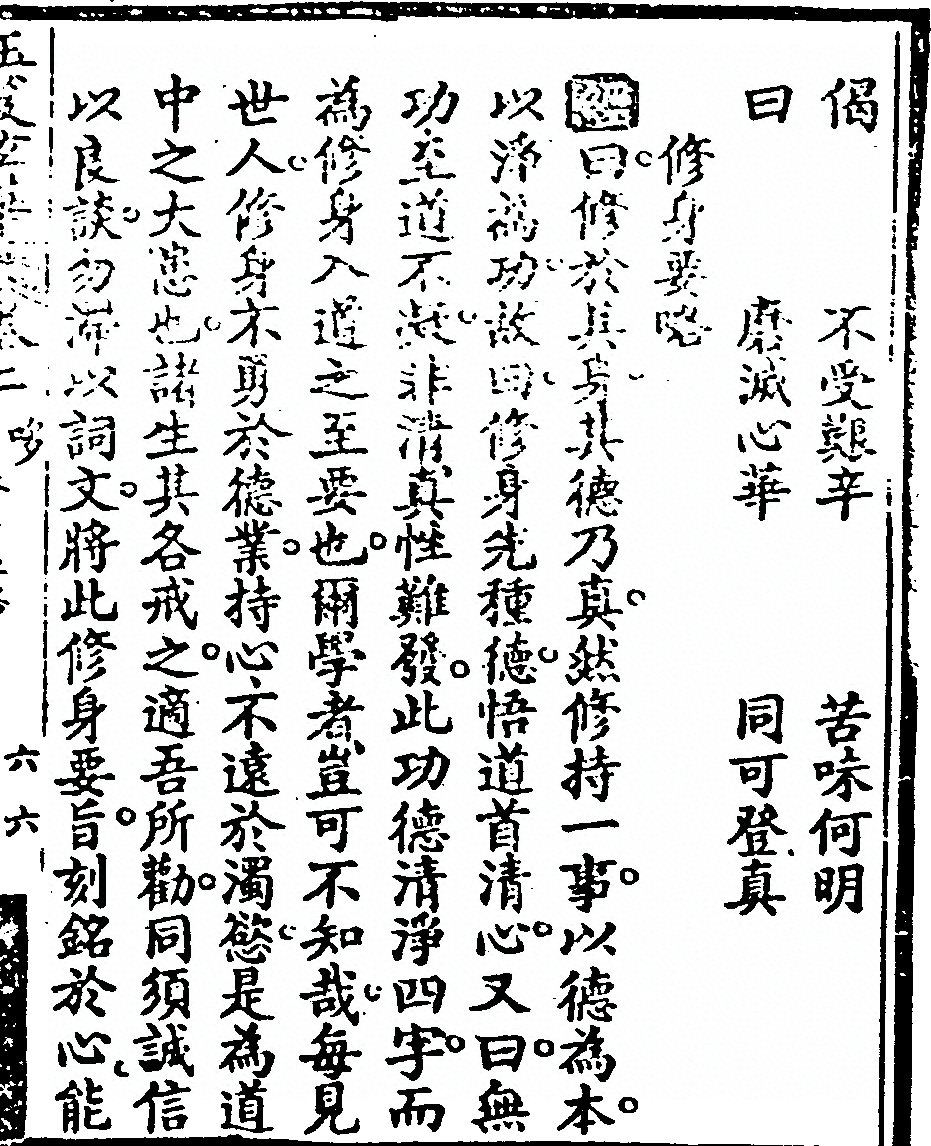 偈　不受艱辛　苦味何明
曰　磨滅心華　同可登真
修身要略
經曰。修於其身。其德乃真。然修持一事。以德為本。
以淨為功。故曰。修身先種德。悟道首清心。又曰。無
功至道不凝。非清真性難發。此功德清淨四字。而
為修身入道之至要也。爾學者豈可不知哉。每見
世人。修身不勇於德業。持心不遠於濁慾。是為道
中之大患也。諸生其各戒之。適吾所勸。同須誠信
以良談。勿滯以詞文。將此修身要旨。刻銘於心。能
卷二
六六